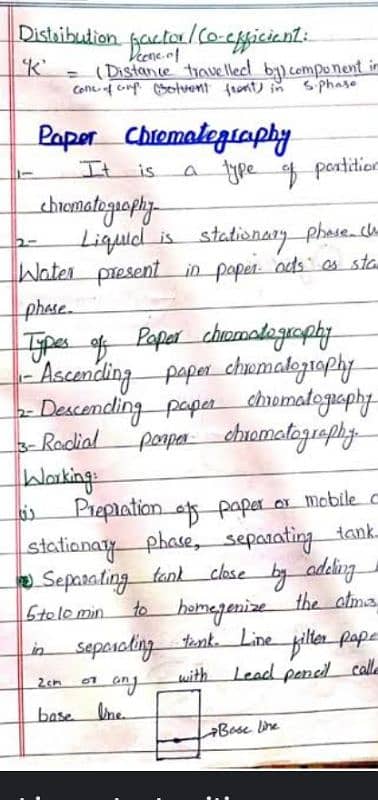 Distribution factor/Co-efficient:
conc. of
'K' = (Distance travelled by) component in
conc. of comp. (Solvent front) in S.phase
Paper Chromatography
1- It is a type of partition
chromatography.
2- Liquid is stationary phase.
Water present in paper acts as sta
phase.
Types of Paper chromatography
1- Ascending paper chromatography
2- Descending paper chromatography
3- Radial paper chromatography.
Working:
(i) Prepration of paper or mobile
stationary phase, separating tank.
Separating tank close by adding
5 to 10 min to homogenize the atmos
in separating tank. Line filter pape
2cm or any with Lead pencil calle
base line.
Base line